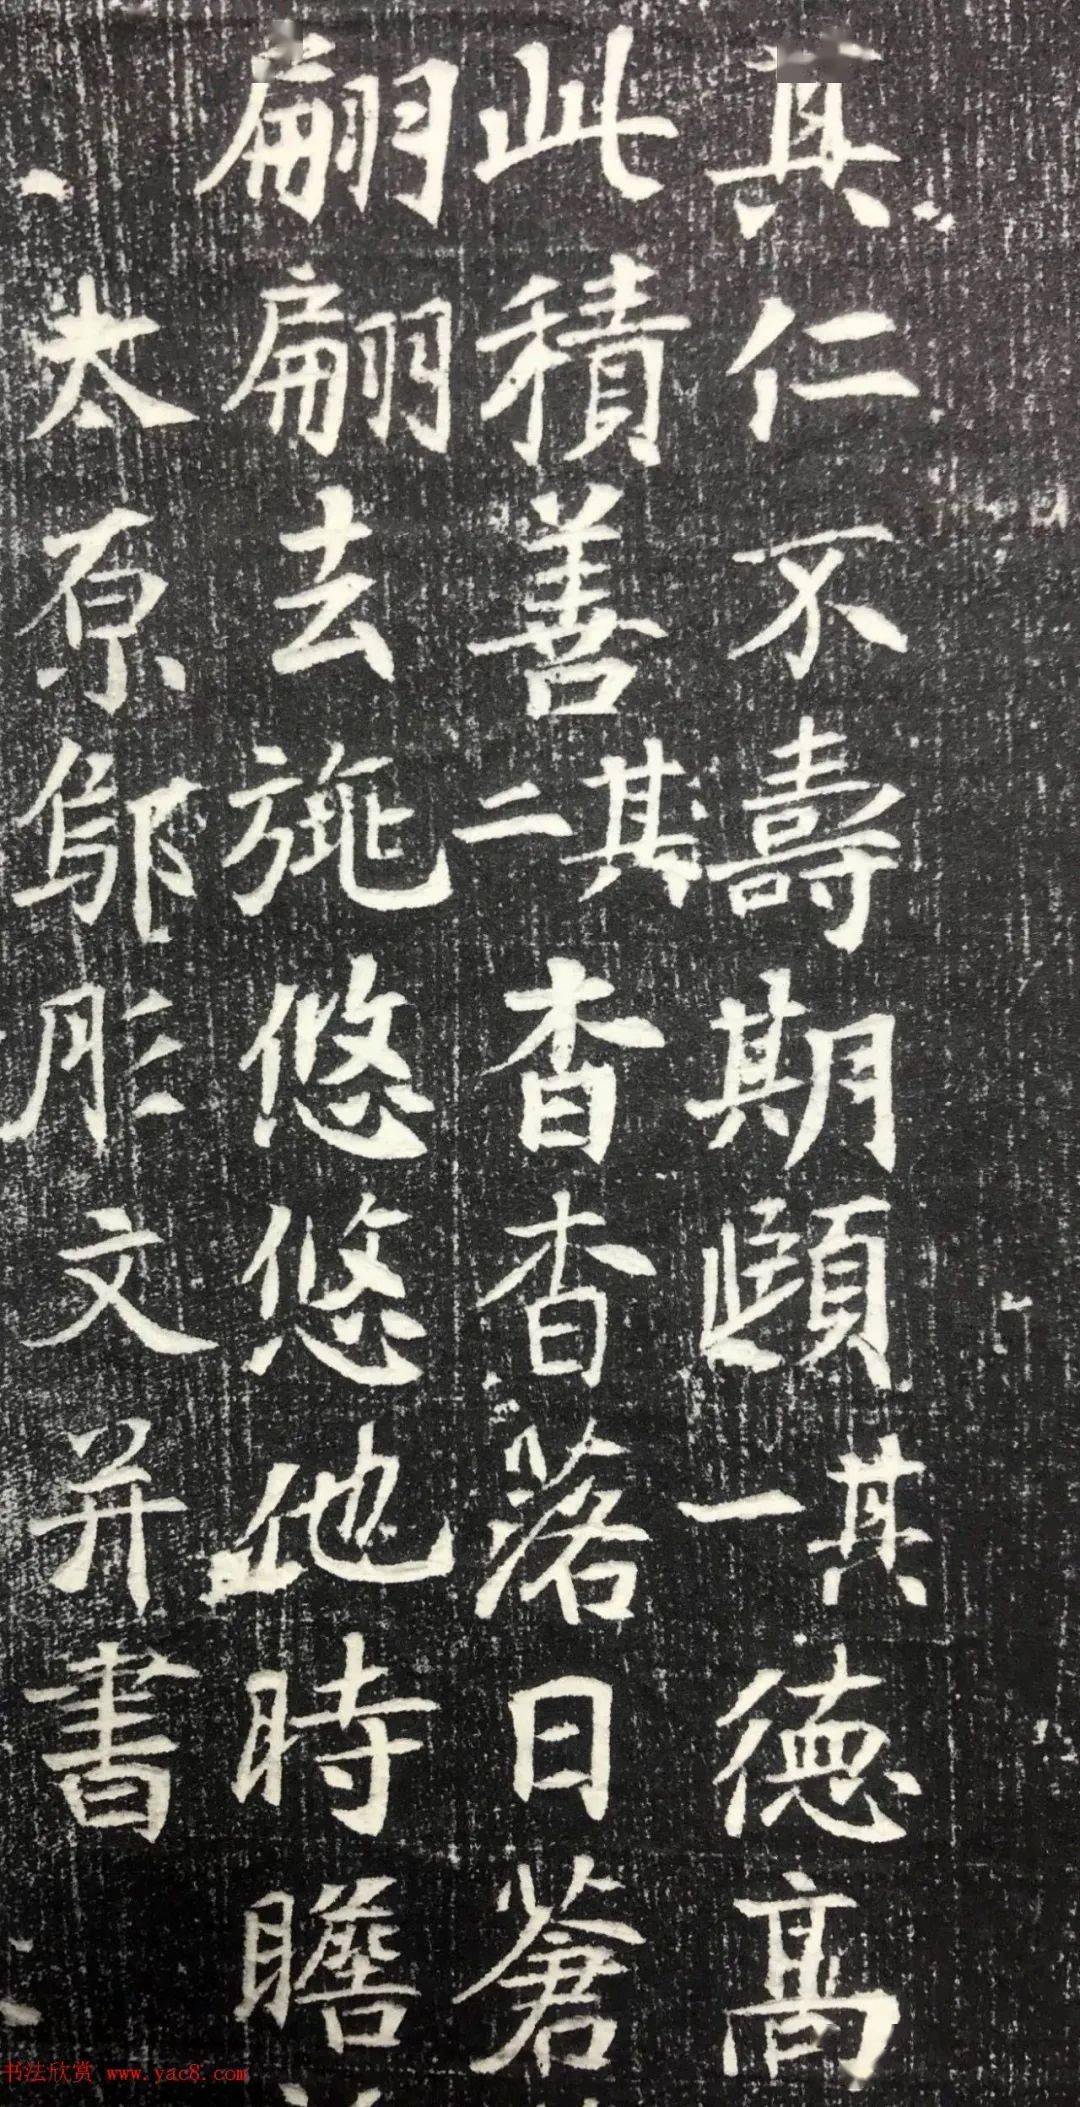 其仁不壽期頤其一德高
此積善其二杳杳落日蒼
翩翩去旐悠悠他時瞻
太原鄔彤文并書
书法欣赏 www.yac8.com